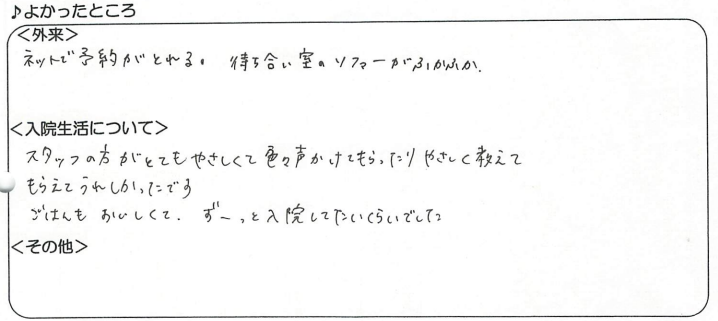 ♪よかったところ
＜外来＞
ネットで予約がとれる。 待ち合い室のソファーがふかふか。
＜入院生活について＞
スタッフの方がとてもやさしくて色々声かけてもらったりやさしく教えて
もらえてうれしかったです
ごはんもおいしくて、ずーっと入院してたいくらいでした
＜その他＞